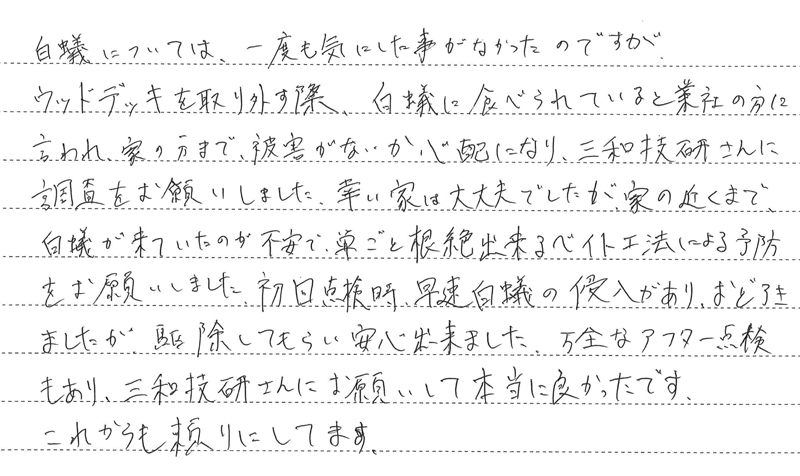 白蟻については、一度も気にした事がなかったのですが、
ウッドデッキを取り外す際、白蟻に食べられていると業社の方に
言われ、家の方まで、被害がないか心配になり、三和技研さんに
調査をお願いしました。幸い家は大丈夫でしたが、家の近くまで、
白蟻が来ていたのが不安で、巣ごと根絶出来るベイト工法による予防
をお願いしました。初回点検時、早速白蟻の侵入があり、おどろき
ましたが、駆除してもらい安心出来ました。万全なアフター点検
もあり、三和技研さんにお願いして本当に良かったです。
これからも頼りにしてます。